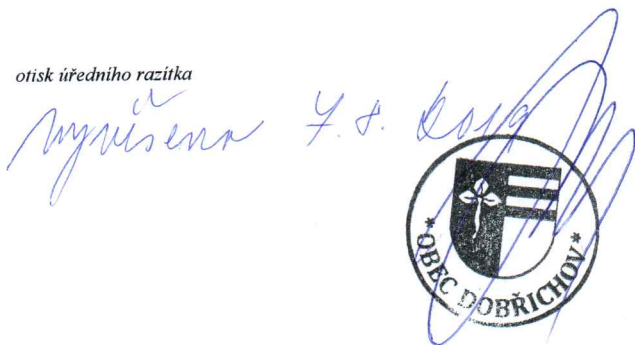 otisk úředního razítka
vyvěšeno 7. 8. 2019
* OBEC DOBŘICHOV *